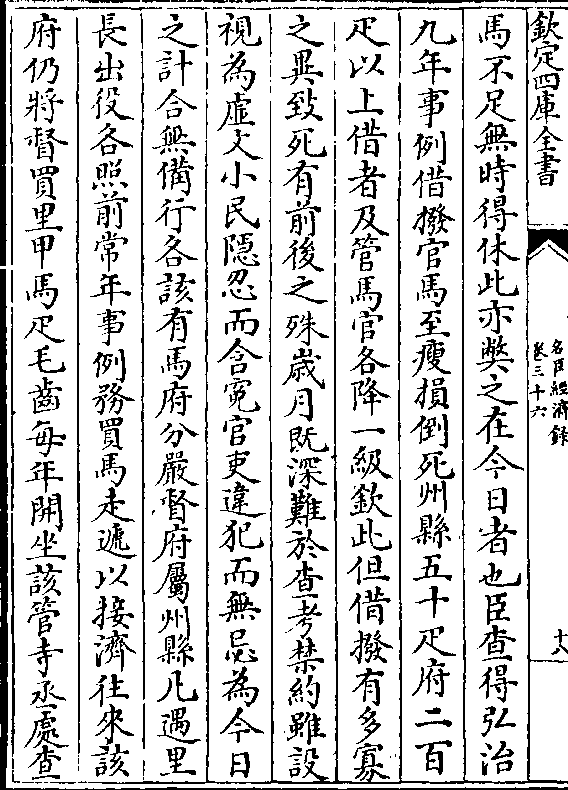 欽定四庫全書
名臣經濟録
卷三十六
十八
馬不足無時得休此亦弊之在今日者也臣查得弘治
九年事例借撥官馬至瘦損倒死州縣五十疋府二百
疋以上借者及管馬官各降一級欽此但借撥有多寡
之異致死有前後之殊歲月既深難於查考禁約雖設
視為虛文小民隠忍而含寃官吏違犯而無忌為今日
之計合無備行各該有馬府分嚴督府屬州縣凡遇里
長出役各照前常年事例務買馬走遞以接濟往來該
府仍將督買里甲馬疋毛齒每年開坐該管寺丞處查